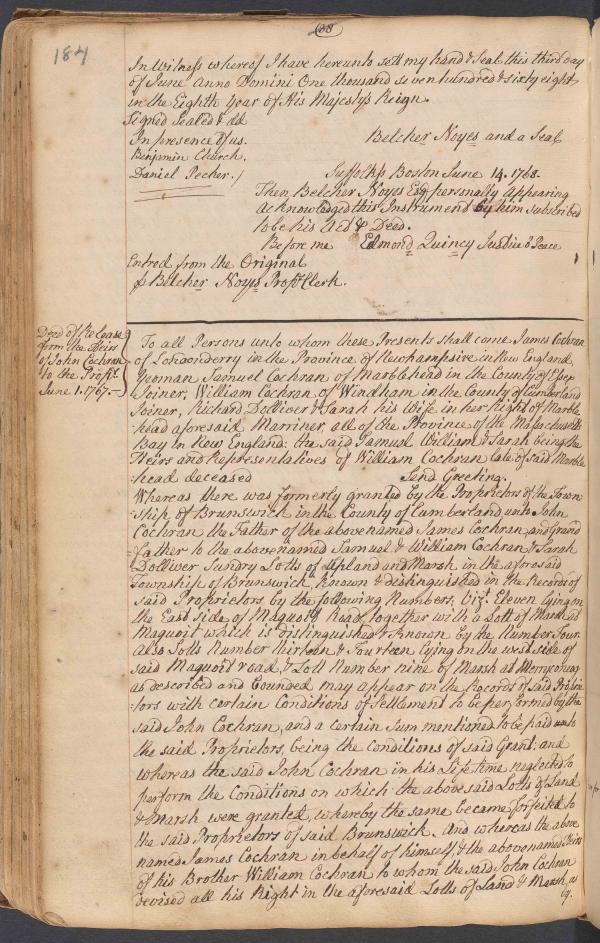 184
In Witness whereof I have hereunto sett my hand & Seal this third day
of June Anno Domini One thousand seven hundred & sixty eight
in the Eighth Year of His Majestys Reign.
Signed Sealed & dd
In presence of us.
Belcher Noyes and a Seal
Benjamin Church.
Daniel Pecker.
Suffolk ss Boston June 14. 1768.
Then Belcher Noyes Esq personally appearing
acknowledged this Instrument by him subscribed
to be his Act & Deed.
Before me Edmond Quincy Justice o Peace
Entred from the Original
Belcher Noyes Propr. Clerk.
Deed of Release
from the Heirs
of John Cochran
to the Proprs.
June 1. 1767.
To all Persons unto whom these Presents shall come James Cochran
of Londonderry in the Province of Newhampsire in New England
Yeoman Samuel Cochran of Marblehead in the County of Essex
Joiner, William Cochran of Windham in the County of Cumberland
Joiner, Richard Dolliver & Sarah his Wife in her Right of Marble
head aforesaid Marriner, all of the Province of the Massachusetts
Bay in New England: the said Samuel William & Sarah being the
Heirs and Representatives of William Cochran late of said Marble
-head deceased Send Greeting.
Whereas there was formerly granted by the Proprietors of the Town
:ship of Brunswick in the County of Cumberland unto John
Cochran the Father of the abovenamed James Cochran, and Grand
:father to the abovenamed Samuel & William Cochran & Sarah
Dolliver Sundry Lotts of Upland and Marsh in the aforesaid
Township of Brunswick, known & distinguished in the Records of
said Proprietors by the following Numbers, Vizt. Eleven lying on
the East side of Maquoit Road, together with a Lott of Marsh at
Maquoit which is distinguished & known by the Number Four
also Lotts Number thirteen & Fourteen lying on the west side of
said Maquoit road, & Lott Number nine of Marsh at Merryconeag
as described and bounded may appear on the Records of said Proprie
:tors with certain Conditions of Settlement to be performed by the
said John Cochran, and a certain sum mentioned to be paid unto
the said Proprietors, being the conditions of said Grant: and
whereas the said John Cochran in his Life time neglected to
perform the Conditions on which the abovesaid Lotts of Land
& Marsh were granted, whereby the same became forfeited to
the said Proprietors of said Brunswick, And whereas the above
named James Cochran in behalf of himself & the abovenamed Heirs
of his Brother William Cochran to whom the said John Cochran
devised all his Right in the aforesaid Lotts of Land & Marsh, as